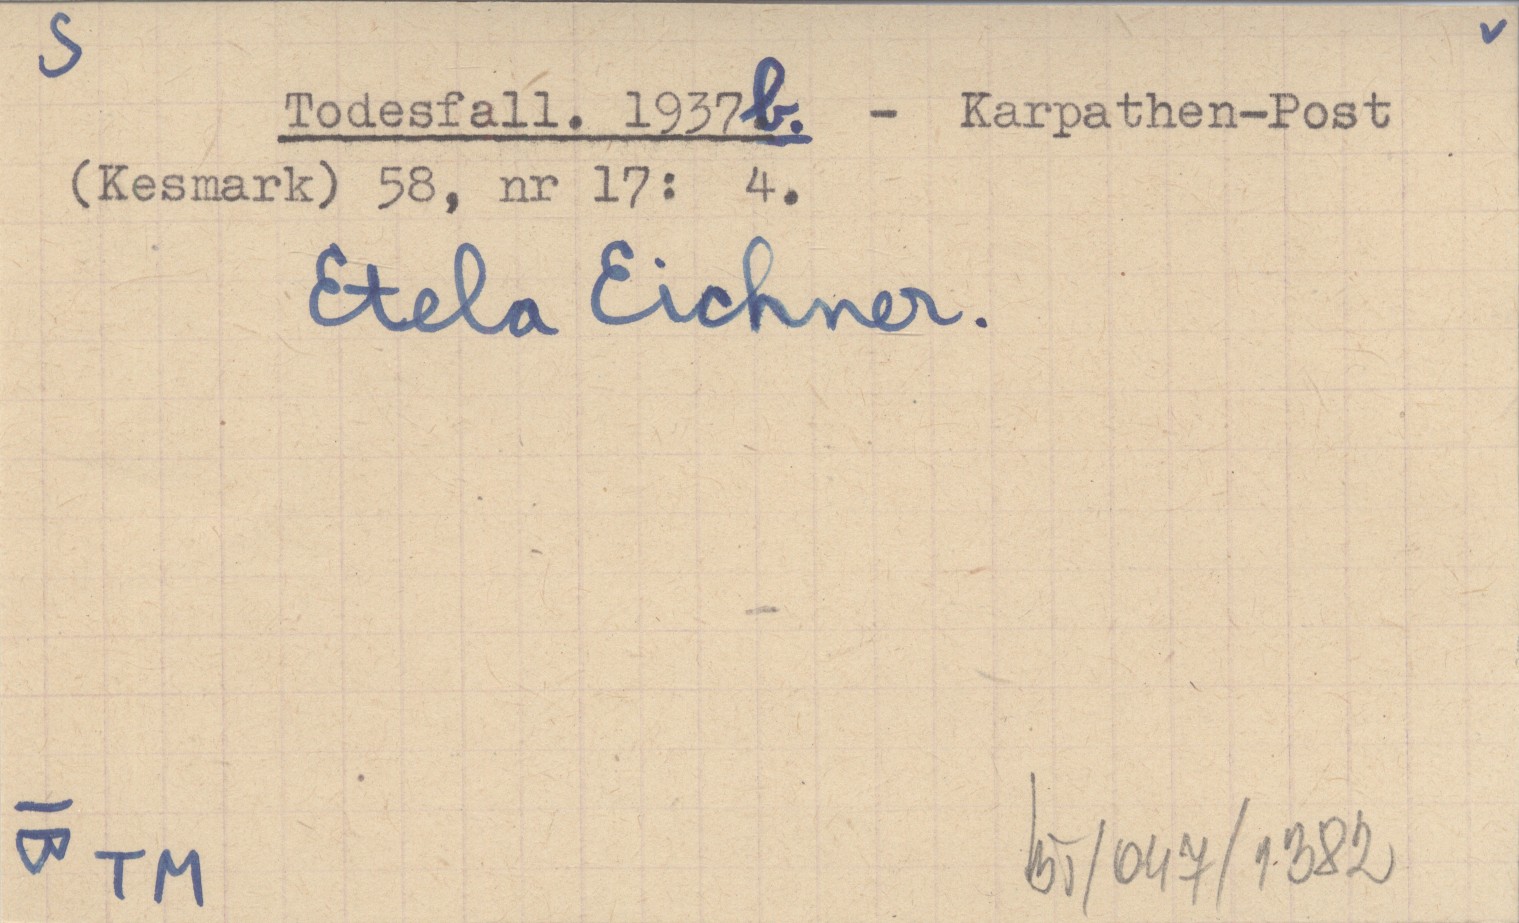 S
Todesfall. 1937b. - Karpathen-Post
(Kesmark) 58, nr 17: 4.
Etela Eichner.
TM
/047/1382